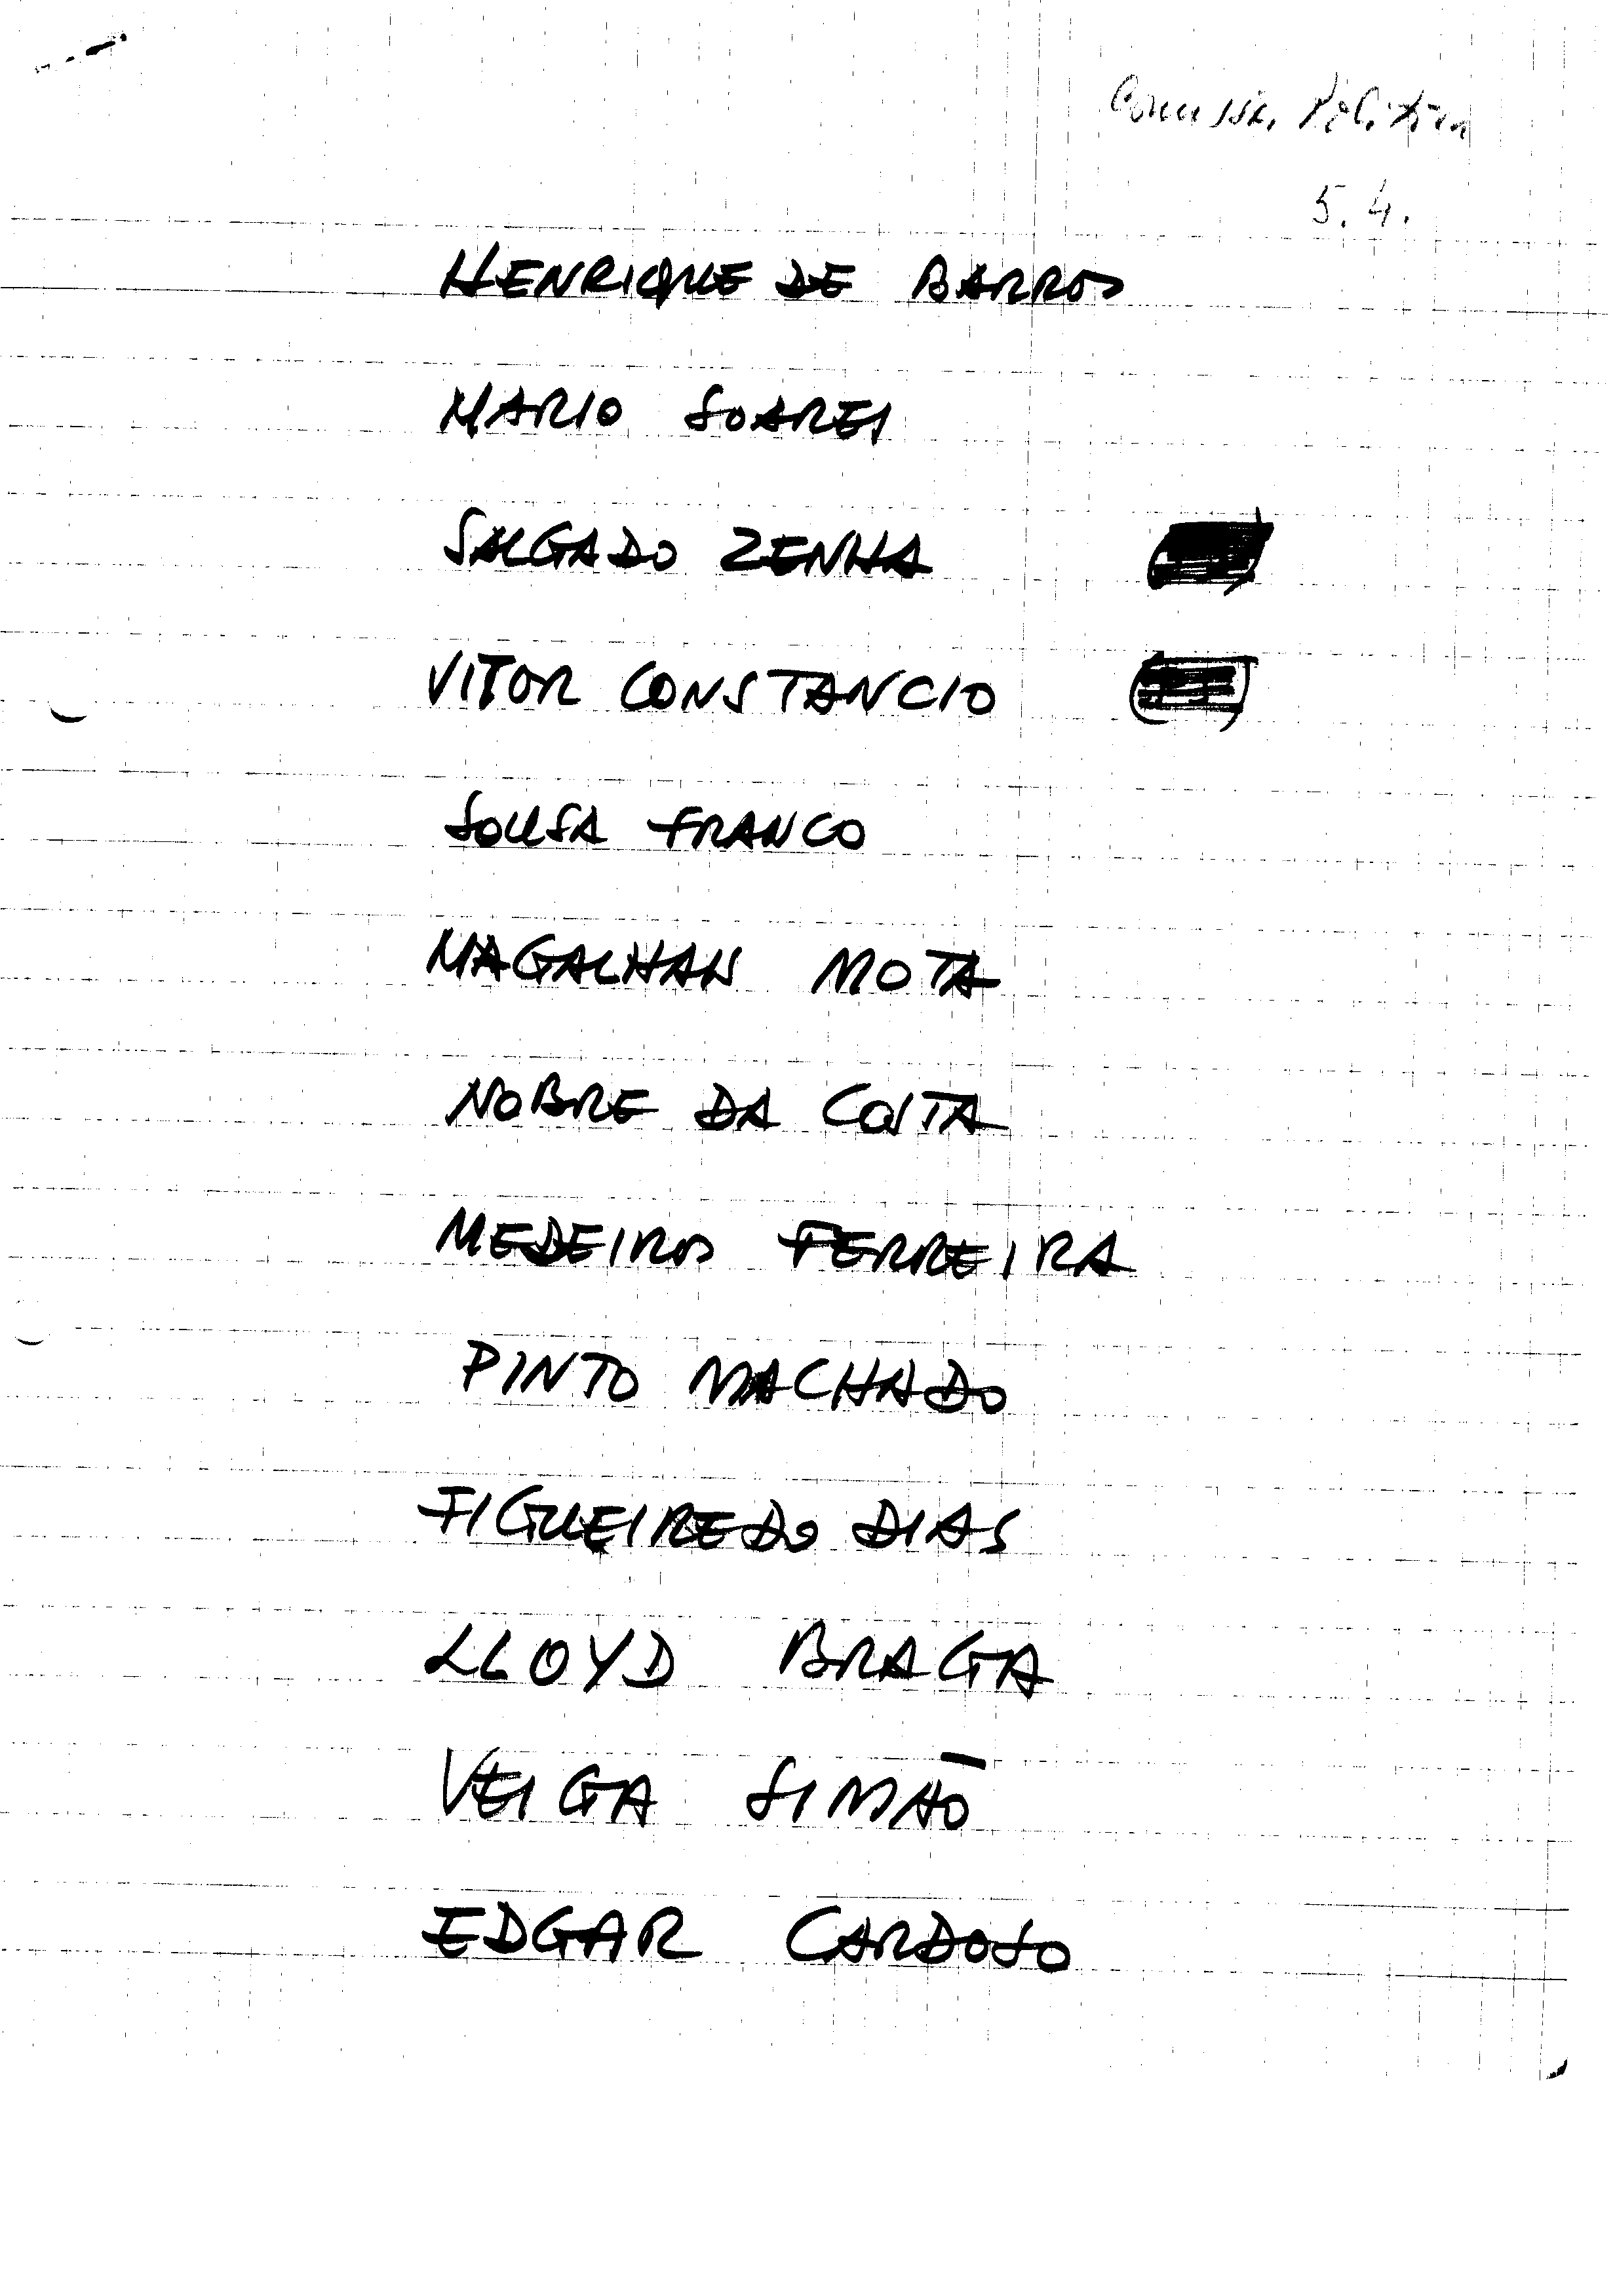 Comissão Política
5.4.
HENRIQUE DE BARROS
MARIO SOARES
SALGADO ZENHA
VITOR CONSTANCIO
SOUSA FRANCO
MAGALHAES MOTA
NOBRE DA COSTA
MEDEIROS FERREIRA
PINTO MACHADO
FIGUEIREDO DIAS
LLOYD BRAGA
VEIGA SIMÃO
EDGAR CARDOSO